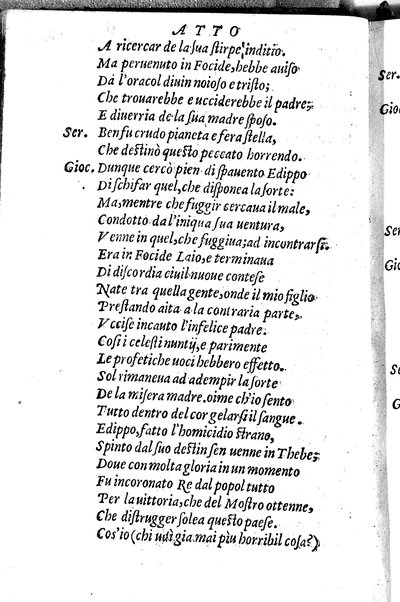 ATTO
A ricercar de la sua stirpe inditio.
Ma peruenuto in Focide, hebbe auiso
Da l'oracol diuin noioso e tristo;
Che trouarebbe e ucciderebbe il padre;
E diuerria de la sua madre sposo.
Ser. Ben fu crudo pianeta e fera stella,
Che destinò questo peccato horrendo.
Gioc. Dunque cercò pien di spauento Edippo
Di schifar quel, che disponea la sorte:
Ma, mentre che fuggir cercaua il male,
Condotto da l'iniqua sua uentura,
Venne in quel, che fuggiua; ad incontrarsi.
Era in Focide Laio, e terminaua
Di discordia ciuil nuoue contese
Nate tra quella gente, onde il mio figlio
Prestando aita a la contraria parte,
Vccise incauto l'infelice padre.
Cosi i celesti nuntij, e parimente
Le profetiche uoci hebbero effetto.
Sol rimaneua ad adempir la sorte
De la misera madre. oime ch'io sento
Tutto dentro del cor gelarsi il sangue.
Edippo, fatto l'homicidio strano,
Spinto dal suo destin sen uenne in Thebe;
Doue con molta gloria in un momento
Fu incoronato Re dal popol tutto
Per la uittoria, che del Mostro ottenne,
Che distrugger solea questo paese.
Cos'io (chi udì gia mai più horribil cosa?)
Ser.
Gioc
Ser
Gio
Se
G